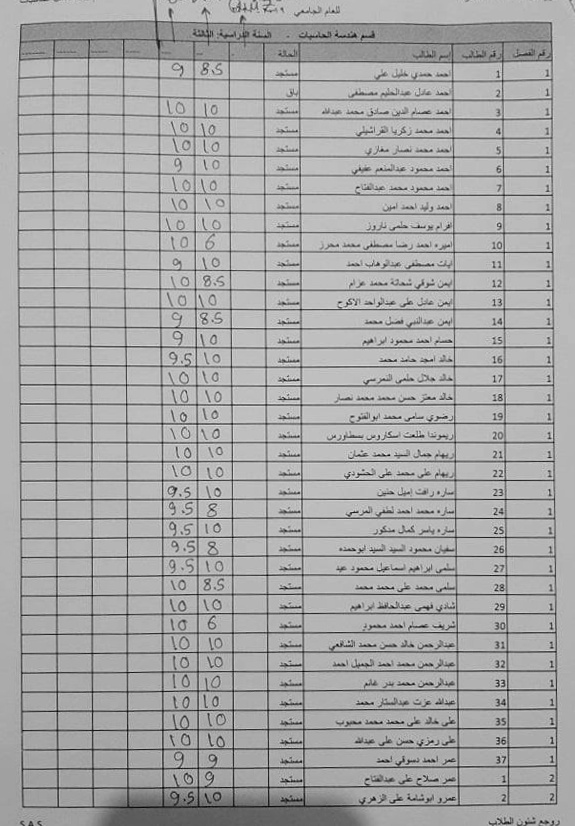 للعام الجامعي
قسم هندسة الحاسبات - السنة الدراسية: الثالثة
رقم الفصل رقم الطالب اسم الطالب الحالة
1 1 احمد حمدي خليل علي مستجد 8.5 9
1 2 احمد عادل عبدالحليم مصطفى باق
1 3 احمد عصام الدين صادق محمد عبدالله مستجد 10 10
1 4 احمد محمد زكريا القراشيلي مستجد 10 10
1 5 احمد محمد نصار مغازي مستجد 10 10
1 6 احمد محمود عبدالمنعم عفيفي مستجد 10 9
1 7 احمد محمود محمد عبدالفتاح مستجد 10 10
1 8 احمد وليد احمد امين مستجد 10 10
1 9 افرام يوسف حلمى ناروز مستجد 10 10
1 10 اميره احمد رضا مصطفى محمد محرز مستجد 6 10
1 11 ايات مصطفى عبدالوهاب احمد مستجد 10 9
1 12 ايمن شوقي شحاتة محمد عزام مستجد 8.5 10
1 13 ايمن عادل على عبدالواحد الاكوح مستجد 10 10
1 14 ايمن عبدالنبي فضل محمد مستجد 8.5 9
1 15 حسام احمد محمود ابراهيم مستجد 10 9
1 16 خالد امجد حامد محمد مستجد 10 9.5
1 17 خالد جلال حلمى النمرسي مستجد 10 10
1 18 خالد معتز حسن محمد محمد نصار مستجد 10 10
1 19 رضوي سامى محمد ابوالفتوح مستجد 10 10
1 20 ريموندا طلعت اسكاروس بسطاورس مستجد 10 10
1 21 ريهام جمال السيد محمد عثمان مستجد 10 10
1 22 ريهام على محمد على الحشودي مستجد 10 10
1 23 ساره رافت إميل حنين مستجد 10 9.5
1 24 ساره محمد احمد لطفي المرسي مستجد 8 9.5
1 25 ساره ياسر كمال مدكور مستجد 10 9.5
1 26 سفيان محمود السيد السيد ابوحمده مستجد 8 9.5
1 27 سلمى ابراهيم اسماعيل محمود عيد مستجد 10 9.5
1 28 سلمى محمد على محمد محمد مستجد 8.5 10
1 29 شادي فهمى عبدالحافظ ابراهيم مستجد 10 10
1 30 شريف عصام احمد محمود مستجد 6 10
1 31 عبدالرحمن خالد حسن محمد الشافعي مستجد 10 10
1 32 عبدالرحمن محمد احمد الجميل احمد مستجد 10 10
1 33 عبدالرحمن محمد بدر غانم مستجد 10 10
1 34 عبدالله عزت عبدالستار محمد مستجد 10 10
1 35 على خالد على محمد محمد محبوب مستجد 10 10
1 36 على رمزي حسن على عبدالله مستجد 10 10
1 37 عمر احمد دسوقي احمد مستجد 9 9
2 1 عمر صلاح على عبدالفتاح مستجد 9 10
2 2 عمرو ابوشامة على الزهري مستجد 10 9.5
روجع شئون الطلاب S.A.S